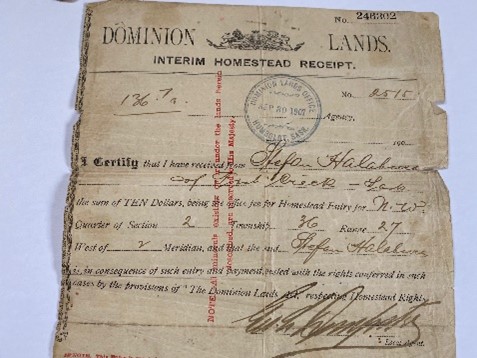 No. 246302
DOMINION LANDS.
INTERIM HOMESTEAD RECEIPT.
DOMINION LANDS OFFICE
SEP 20 1907
HUMBOLDT, SASK.
No. 2515
Agency,
190
I Certify that I have received from Stefan
of Creek
the sum of TEN Dollars, being the office fee for Homestead Entry for N.W.
Quarter of Section 2 Township 36 Range 27
West of 2 Meridian, and that the said Stefan
is, in consequence of such entry and payment, vested with the rights conferred in such
cases by the provisions of "The Dominion Lands Act, respecting Homestead Rights
Local Agent.
NOTE. All minerals existing on or under the lands herein
described, are reserved to His Majesty.